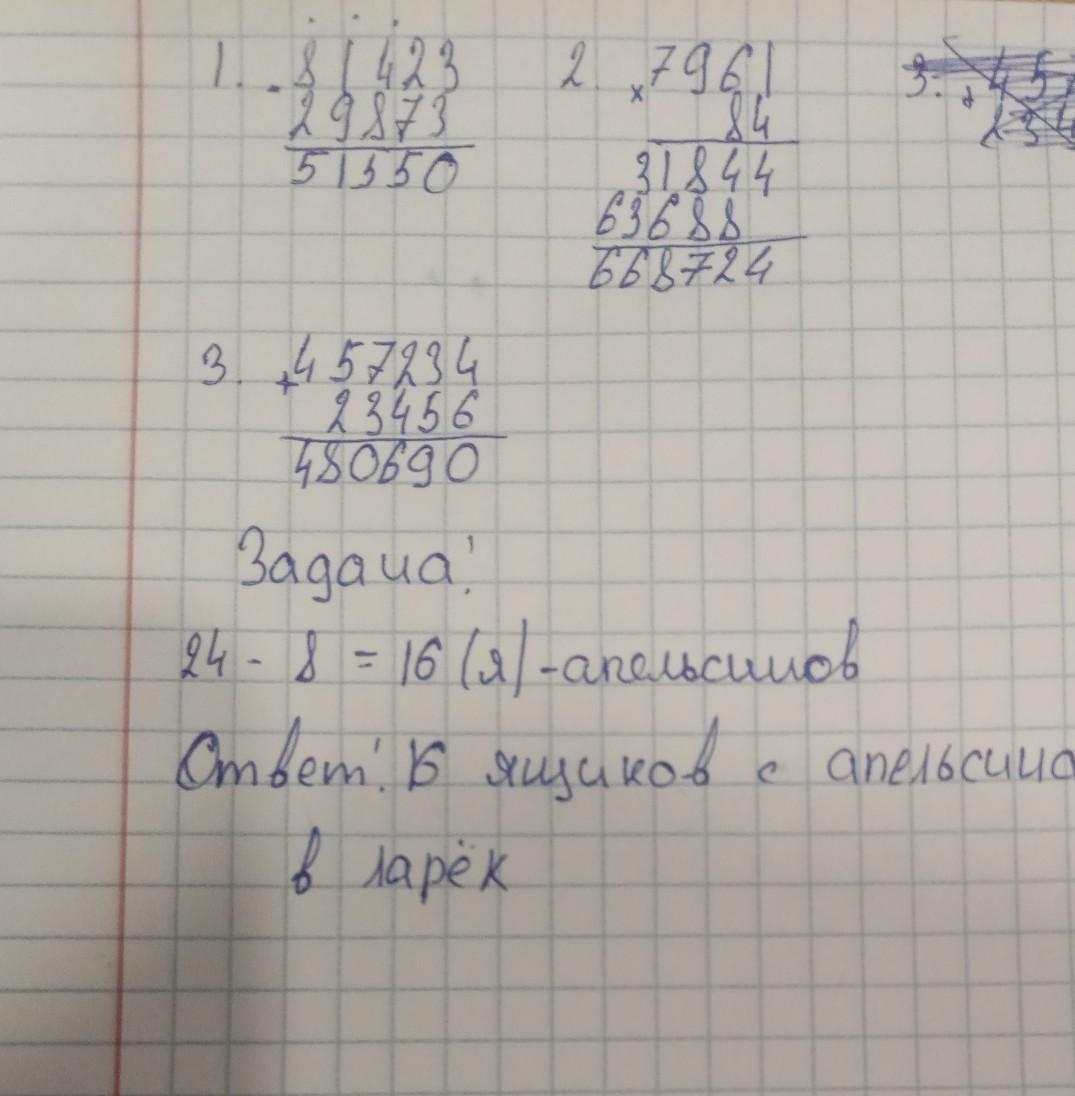 1. - 81423
29873
51550
2. × 7961
84
31844
63688
668724
3. + 457234
23456
480690
Задача:
24 - 8 = 16 (я) - апельсинов
Ответ: 16 ящиков с апельсина
в ларёк